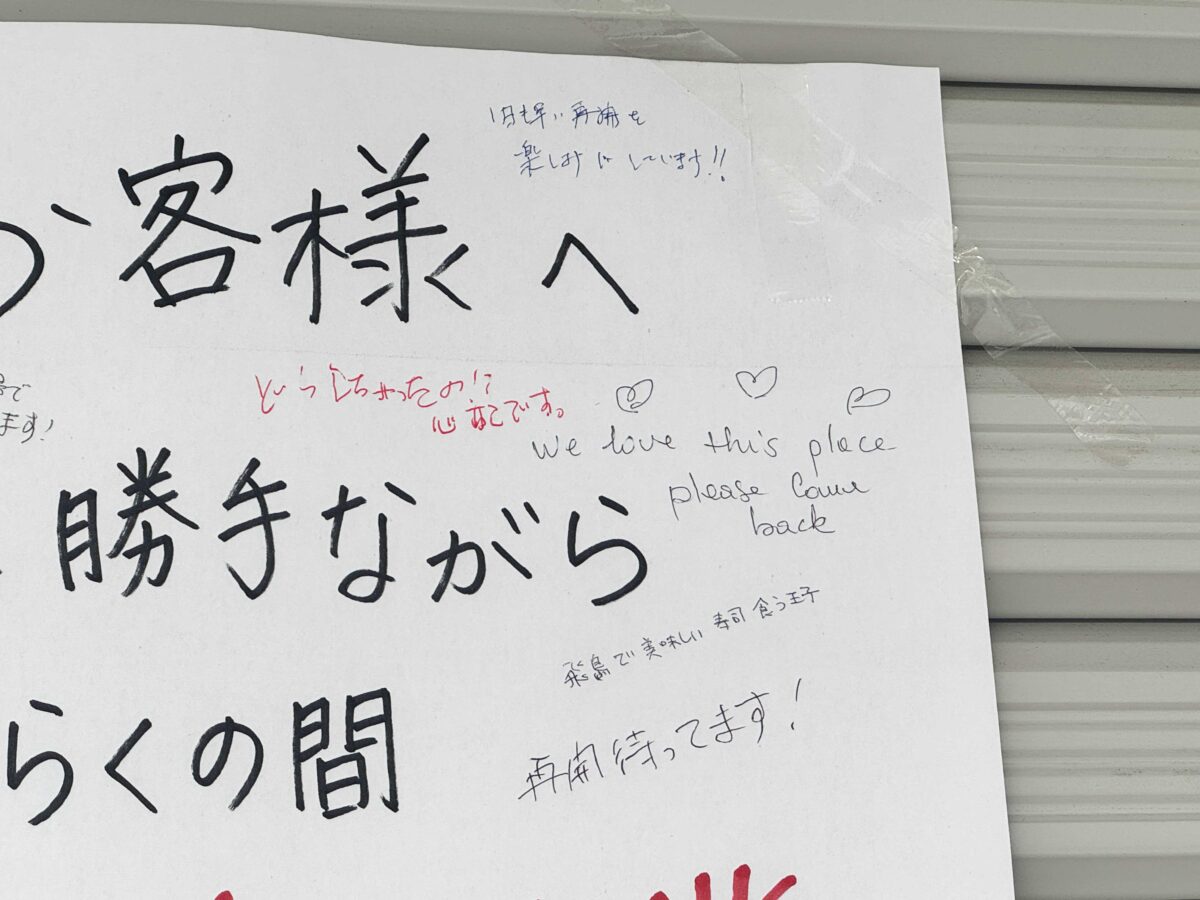 1日も早い再開を
楽しみにしています!!
お客様へ
で
ます!
どうしちゃったの!?
心配です。
We love this place
please come
back
勝手ながら
飛鳥で美味しい寿司食う王子
再開待ってます!
らくの間